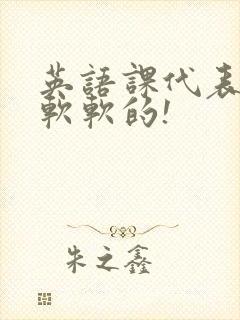 英語課代表
軟軟的!
朱之鑫